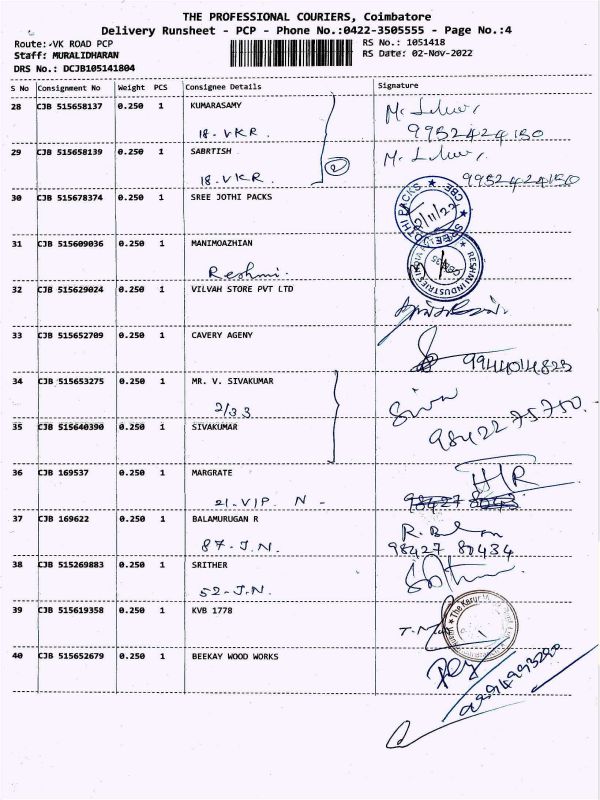 THE PROFESSIONAL COURIERS, Coimbatore
Delivery Runsheet - PCP - Phone No.:0422-3505555 - Page No.:4
Route: VK ROAD PCP
RS No.: 1051418
Staff: MURALIDHARAN
RS Date: 02-Nov-2022
DRS No.: DCJB105141804
S No Consignment No Weight PCS Consignee Details Signature
28 CJB 515658137 0.250 1 KUMARASAMY
18. VKR. 9952424150
29 CJB 515658139 0.250 1 SABRTISH
2
18. VKR. 9952424150
30 CJB 515678374 0.250 1 SREE JOTHI PACKS
SREE JOTHI PACKS ★ CBE ★
2/11/22
31 CJB 515609036 0.250 1 MANIMOAZHIAN
Reshmi.
RESHMI INDUSTRIES
32 CJB 515629024 0.250 1 VILVAH STORE PVT LTD
33 CJB 515652709 0.250 1 CAVERY AGENY
34 CJB 515653275 0.250 1 MR. V. SIVAKUMAR
2/33 Siva
35 CJB 515640390 0.250 1 SIVAKUMAR
98422 75750.
36 CJB 169537 0.250 1 MARGRATE
21-VIP N -
37 CJB 169622 0.250 1 BALAMURUGAN R
87-J.N. 98427 80434
38 CJB 515269883 0.250 1 SRITHER
52-J.N.
39 CJB 515619358 0.250 1 KVB 1778
The Karur
40 CJB 515652679 0.250 1 BEEKAY WOOD WORKS